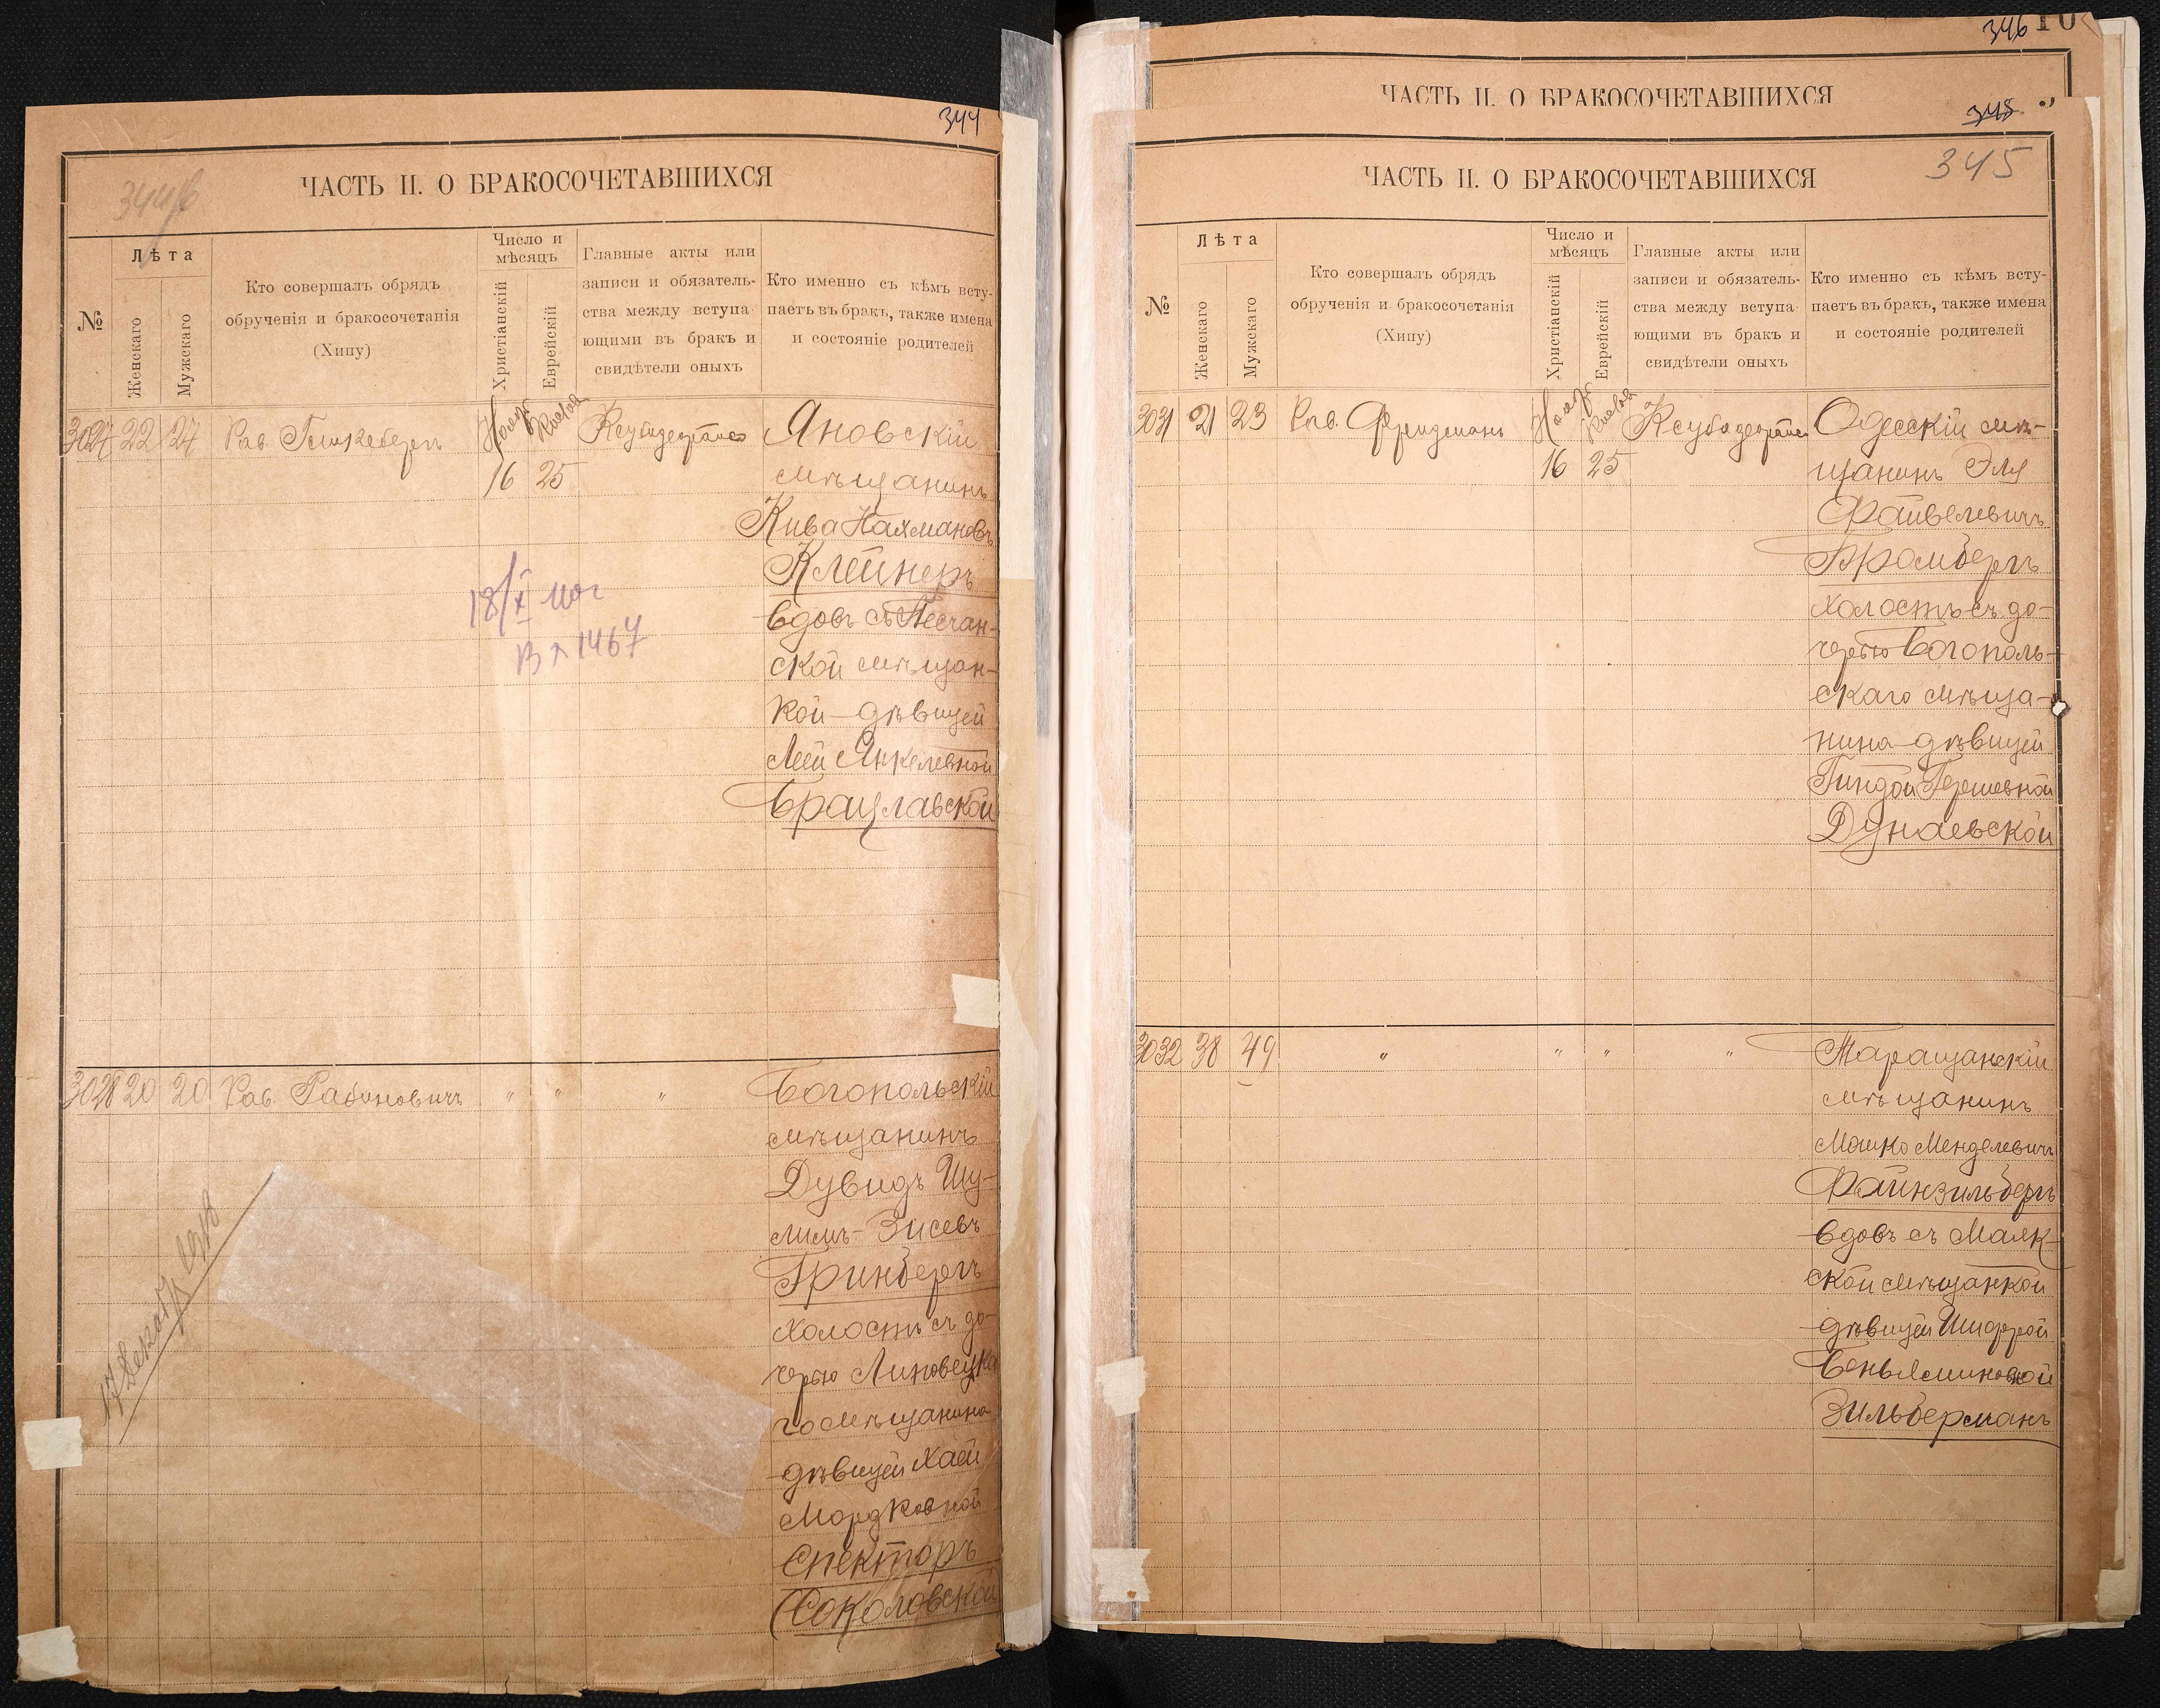 344
344
ЧАСТЬ II. О БРАКОСОЧЕТАВШИХСЯ
№
Лѣта
Женскаго
Мужскаго
Кто совершалъ обрядъ
обрученія и бракосочетанія
(Хипу)
Число и
мѣсяцъ
Христіанскій
Еврейскій
Главные акты или
записи и обязатель-
ства между вступа-
ющими въ бракъ и
свидѣтели оныхъ
Кто именно съ кѣмъ всту-
паетъ въ бракъ, также имена
и состояніе родителей
3027 22 27 Рав. Ноябр Кислев Яновскій
16 25 мѣщанинъ
Кива Нахмановъ
Клейнеръ
вдовъ съ Песчан-
ской мѣщан-
кой-дѣвицей
Леей Янкелевной
Брацлавской
18/X
1467
3028 20 20 Рав. Рабиновичъ " " " Богопольскій
мѣщанинъ
Дувидъ Шу-
лимъ-Зисевъ
Гринбергъ
холостъ съ до-
черью Липовецка
го мѣщанина
дѣвицей Хаей
Мордковной
Спекторъ
(Соколовской
346
ЧАСТЬ II. О БРАКОСОЧЕТАВШИХСЯ
345
ЧАСТЬ II. О БРАКОСОЧЕТАВШИХСЯ
№
Лѣта
Женскаго
Мужскаго
Кто совершалъ обрядъ
обрученія и бракосочетанія
(Хипу)
Число и
мѣсяцъ
Христіанскій
Еврейскій
Главные акты или
записи и обязатель-
ства между вступа-
ющими въ бракъ и
свидѣтели оныхъ
Кто именно съ кѣмъ всту-
паетъ въ бракъ, также имена
и состояніе родителей
3031 21 23 Рав. Фридманъ Ноябр Кислев Одесскій мѣ-
16 25 щанинъ Эля
Файвелевичъ
Бромбергъ
холостъ съ до-
черью Богополь-
скаго мѣща-
нина-дѣвицей
Гиндой Гершевной
Дунаевской
3032 38 49 " " " " Таращанскій
мѣщанинъ
Мошко Менделевичъ
Файнзильбергъ
вдовъ съ Маяк-
ской мѣщанкой
дѣвицей Шифрой
Беньяминовной
Зильберманъ